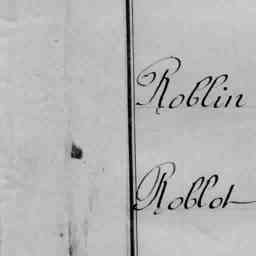 Roblin
Roblot